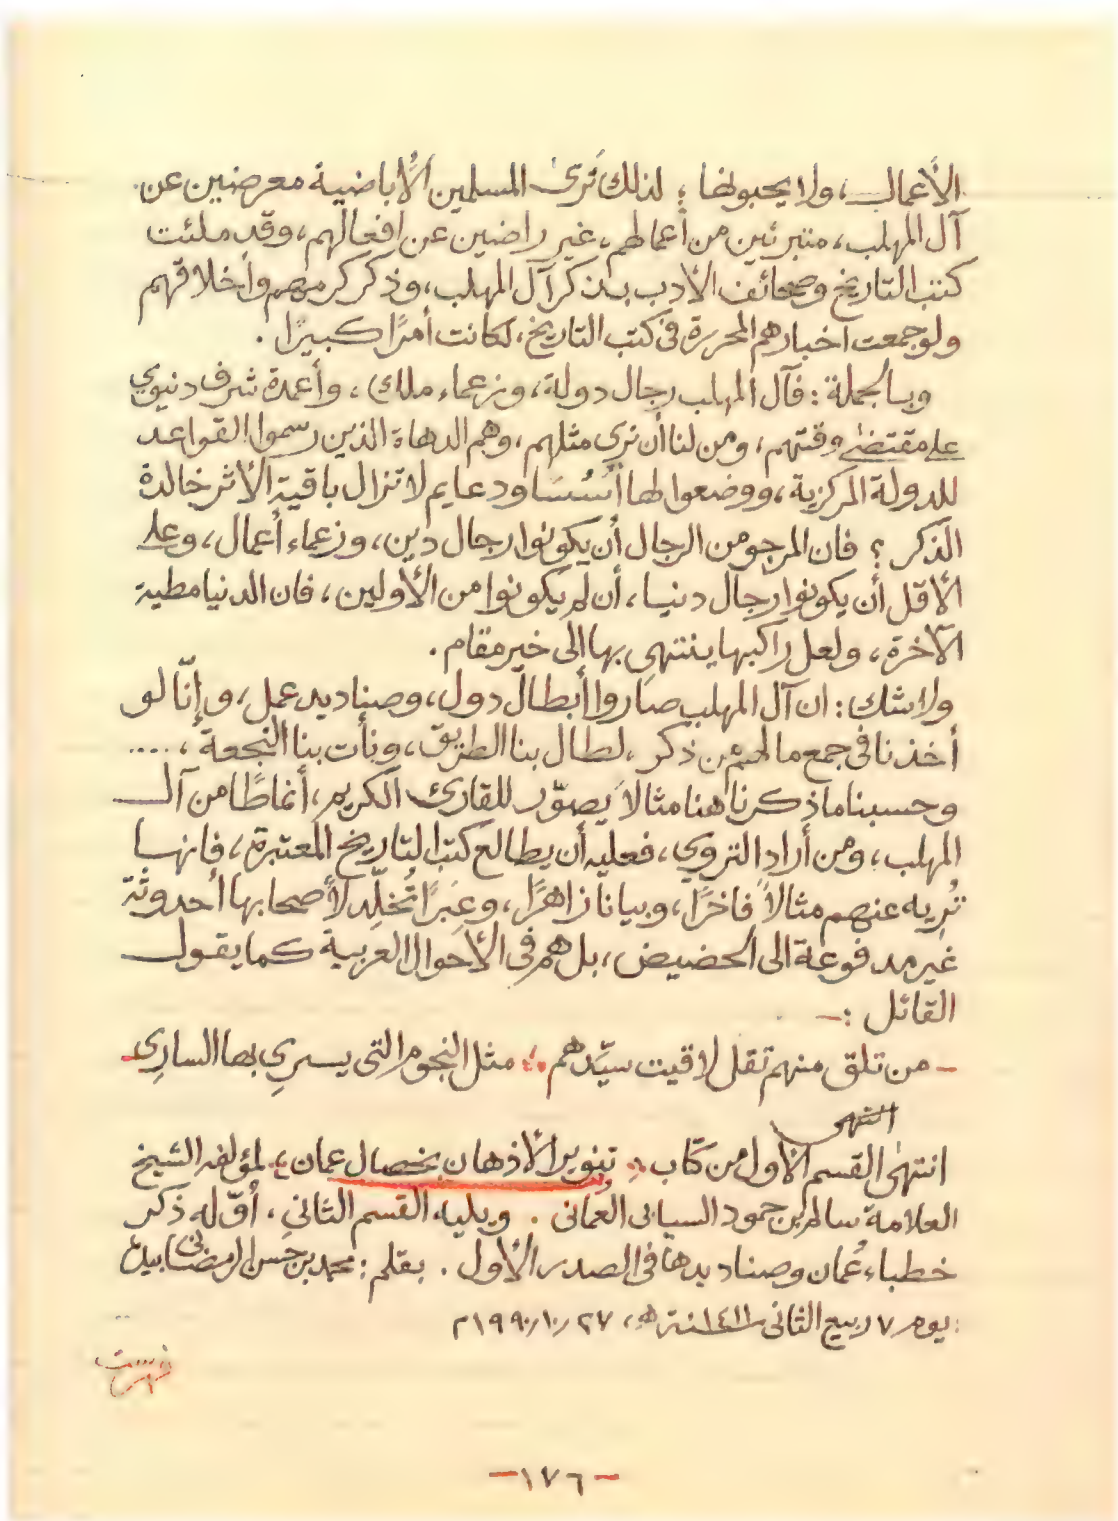 الأعمال، ولا يحبونها؛ لذلك نَرىٰ المسلمين الأُباضية معرضين عن
آل المهلب، متبرئين من أعمالهم، غير راضين عن افعالهم، وقد ملئت
كتب التاريخ وصحائف الأدب بذكر آل المهلب، وذكر كرمهم وأخلاقهم
ولو جمعت اخبارهم المحررة في كتب التاريخ، لكانت أمرًا كبيرًا.
وبالجملة: فآل المهلب رجال دولة، وزعماء ملك، وأعمدة شرف دنيوي
على مقتضىٰ وقتهم، ومن لنا أن نرى مثلهم، وهم الدهاة الذين رسموا القواعد
للدولة المركزية، ووضعوا لها أُسُسًا ودعايم لا تزال باقية الأثر خالدة
الذكر؟ فان المرجو من الرجال أن يكونوا رجال دين، وزعماء أعمال، وعلى
الأقل أن يكونوا رجال دنيا، أن لم يكونوا من الأولين، فان الدنيا مطية
الآخرة، ولعل راكبها ينتهي بها الى خير مقام.
ولا شك: ان آل المهلب صاروا أبطال دول، وصناديد عمل، وإنّا لو
أخذنا في جمع ما لهم من ذكر، لطال بنا الطريق، ونأت بنا النجعة، ....
وحسبنا ما ذكرنا هنا مثالاً يصوّر للقارئ الكريم، أنماطًا من آل
المهلب، ومن أراد التروي، فعليه أن يطالع كتب التاريخ المعتبرة، فإنها
تُرِيه عنهم مثالاً فاخرًا، وبيانا زاهرًا، وعِبَرًا تُخلِّد لأصحابها أحدوثة
غير مدفوعة الى الحضيض، بل هم في الأحوال العربية كما يقول
القائل :ـ
ـ من تلق منهم تقل لاقيت سيّدهم ؛ مثل النجوم التي يسرِي بها السارِي ـ
انتهى
انتهىٰ القسم الأول من كتاب «تنوير الأذهان بخصال عمان» لمؤلفه الشيخ
العلامة سالم بن حمود السيابي العماني. ويليه القسم الثاني، أوّله ذكر
خطباء عُمان وصناديدها في الصدر الأول. بقلم: محمد بن حسن الرمضاني بيده
يوم ٧ ربيع الثاني ١٤١١ سنة هـ، ٢٧/١٠/١٩٩٠م
فهرست
-١٧٦-